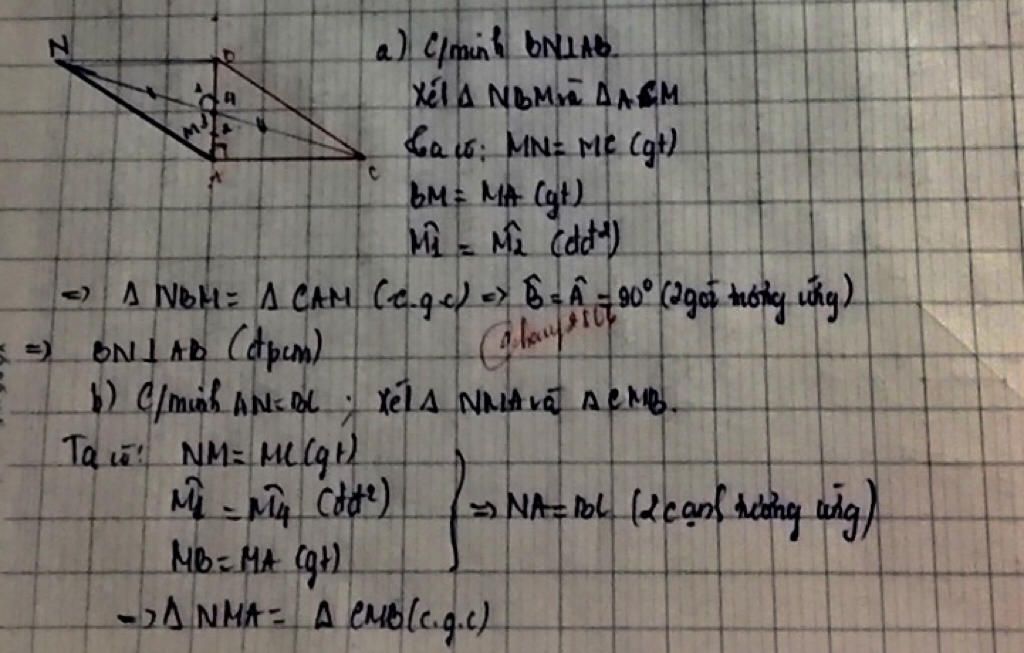 N
B
M
A
C
a) C/minh BN⊥AB.
Xét Δ NBM và Δ ACM
Ta có: MN = MC (gt)
BM = MA (gt)
M̂1 = M̂2 (đđ²)
=> Δ NBM = Δ CAM (c.g.c) => B̂ = Â = 90° (2 góc tương ứng)
=> BN⊥AB (đpcm)
b) C/minh AN=BC ; Xét Δ NMA và Δ CMB.
Ta có: NM = MC (gt)
= M̂4 (đđ²) => NA = BC (2 cạnh tương ứng)
MB = MA (gt)
=> Δ NMA = Δ CMB (c.g.c)